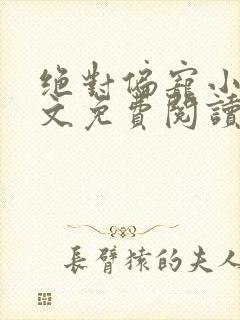 絕對偏寵小
文免費閱讀
長臂猿的夫人